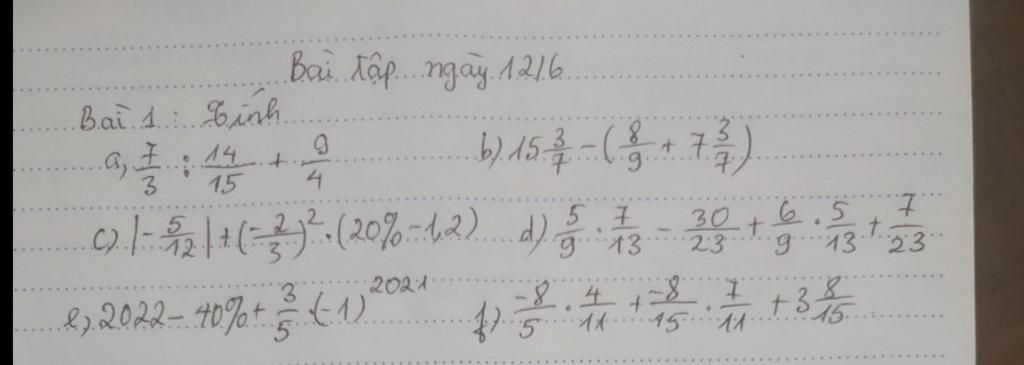 Bài tập ngày 12/6
Bài 1: Tính
a, 7/3 : 14/15 + 9/4 b) 15 3/7 - (8/9 + 7 3/7)
c) |-5/12| + (-2/3)² . (20% - 1,2) d) 5/9 . 7/13 - 30/23 + 6/9 . 5/13 + 7/23
e, 2022 - 40% + 3/5 . (-1)²⁰²¹ f) -8/5 . 4/11 + -8/15 . 7/11 + 3 8/15